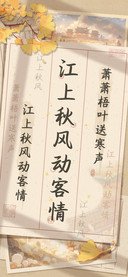 萧萧梧叶送寒声
江上秋风动客情
江上秋风
江上秋风动客情